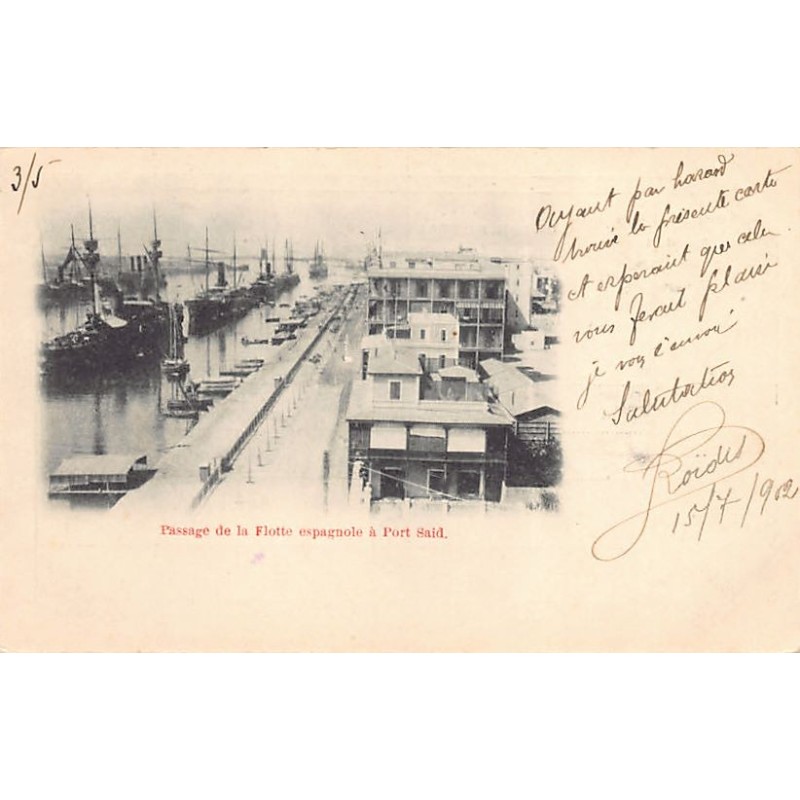 3/5
Ayant par hasard
trouvé la présente carte
et espérant que cela
vous ferait plaisir
je vous l'envoi
Salutation
Roïdis
15/7/902
Passage de la Flotte espagnole à Port Said.